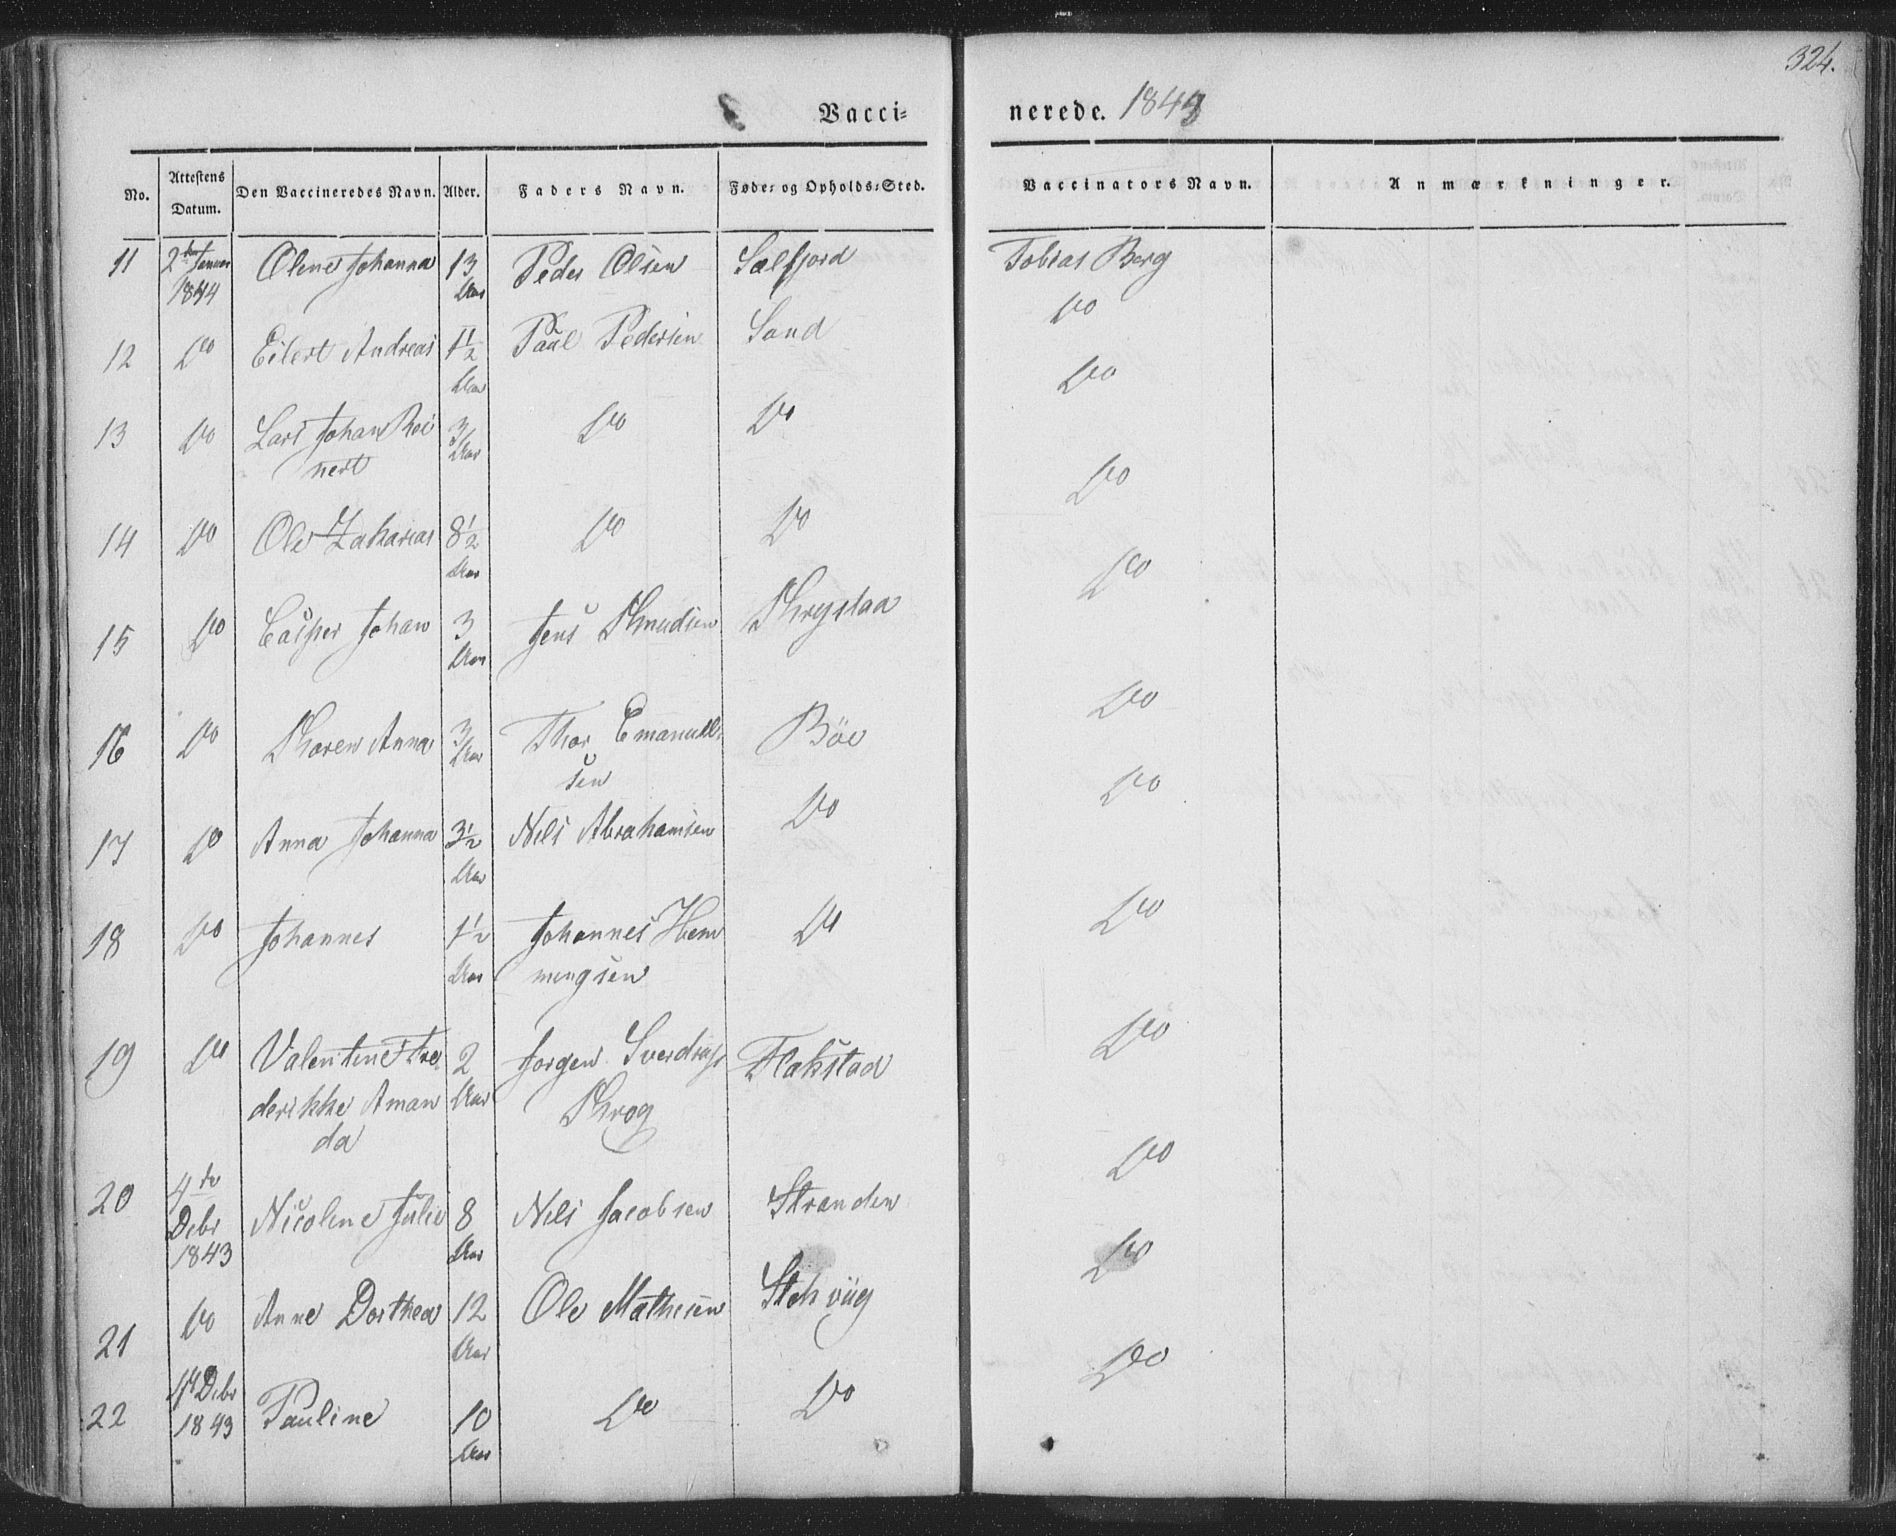 324.
Vacci= nerede. 1843
No. Attestens Datum. Den Vaccineredes Navn. Alder. Faders Navn. Føde= og Opholds=Sted. Vaccinators Navn. Anmærkninger.
11 2den Januar 1844 Oline Johanna 13 Aar Peder Olsen Selfjord Tobias Berg
Do
12 Do Eilert Andreas 1 1/2 Aar Paal Pedersen Sand Do
13 Do Lars Johan Rei
nert 3 Aar Do Do Do
14 Do Ole Zakarias 8 1/2 Aar Do Do Do
15 Do Casper Johan 3 Aar Jens Knudsen Krystad
16 Do Karen Anna 3 Aar Thor Emanuel
sen Böe Do
17 Do Anna Johanna 3 1/2 Aar Nils Abrahamsen Do Do
18 Do Johannes 1 1/2 Aar Johannes Hem
mingsen Do Do
19 Do Valentine Fre
derikke Aman
da 2 Aar Jørgen Sverdrup
Krog Flakstad Do
20 4de Debr 1843 Nicoline Julie 8 Aar Nils Jacobsen Stranden Do
21 Do Anne Dorthea 12 Aar Ole Mathisen Do
22 4d Debr 1843 Pauline 10 Aar Do Do Do